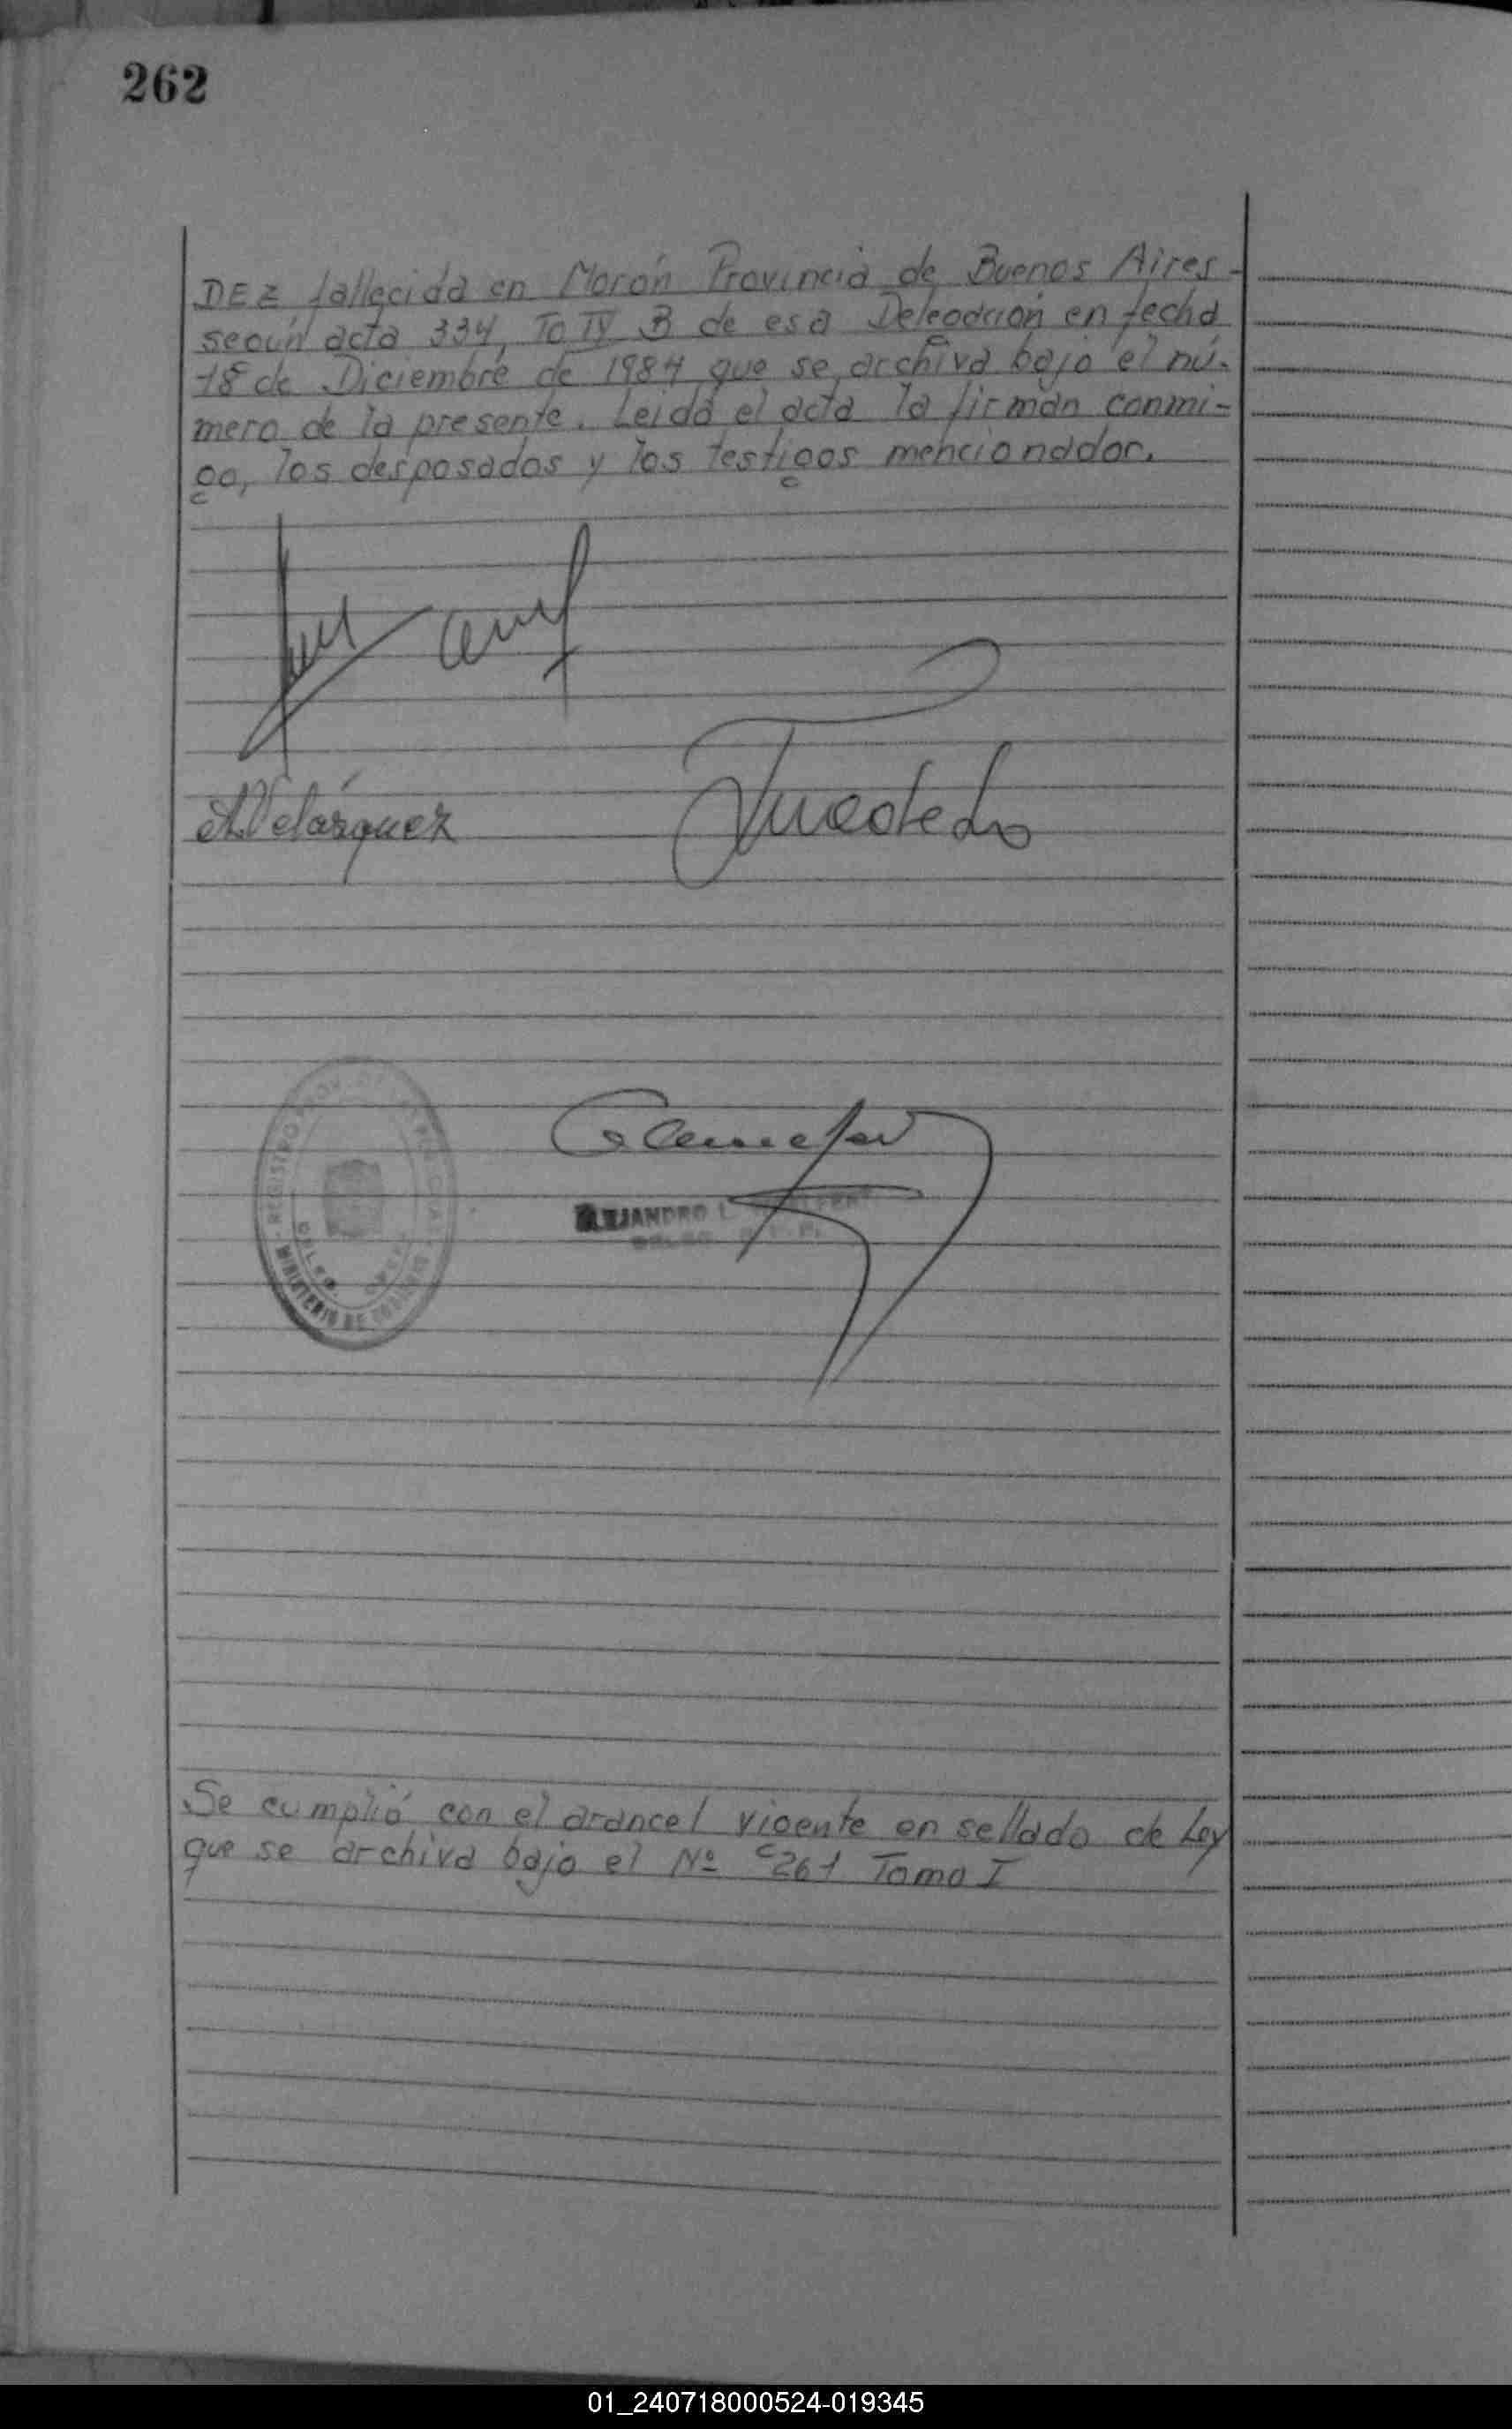 262
DEZ fallecida en Morón Provincia de Buenos Aires -
según acta 334, To IV B de esa Delegación en fecha
18 de Diciembre de 1984 que se archiva bajo el nú-
mero de la presente. Leida el acta la firman conmi-
go, los desposados y los testigos mencionados.
A Velásquez
ALEJANDRO L.
REGISTRO
MINISTERIO DE
DELEG.
Se cumplió con el arancel vigente en sellado de Ley
que se archiva bajo el Nº 261 Tomo I
01_240718000524-019345